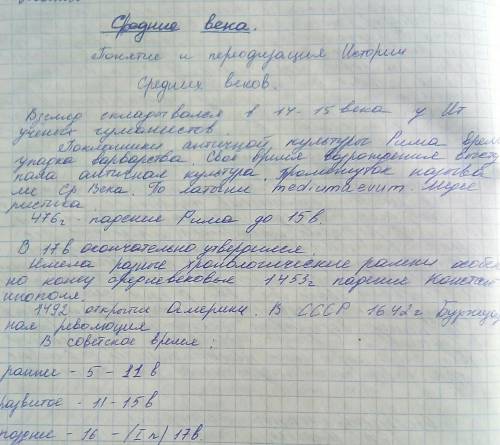 Средние века.
Понятие и периодизация Истории
Средних веков.
Взгляд складывался в 14-15 века у Ит
ученых гуманистов.
Поклонники античной культуры Рима врем
упадка варварства. Свое время возрождения
пала античная культура, промежуток назыв
ли Ср Века. По латыни medium aevum.
476г - падение Рима до 15в.
В 17в окончательно утвердился
Имела разные хронологические рамки особе
но концу средневековье 1453г падение Констант
инополя.
1492 открытие Америки. В СССР 1642г Буржуаз
ная революция
В советское время:
раннее - 5 - 11 в
развитое - 11 - 15в
позднее - 16 - (I п) 17в.